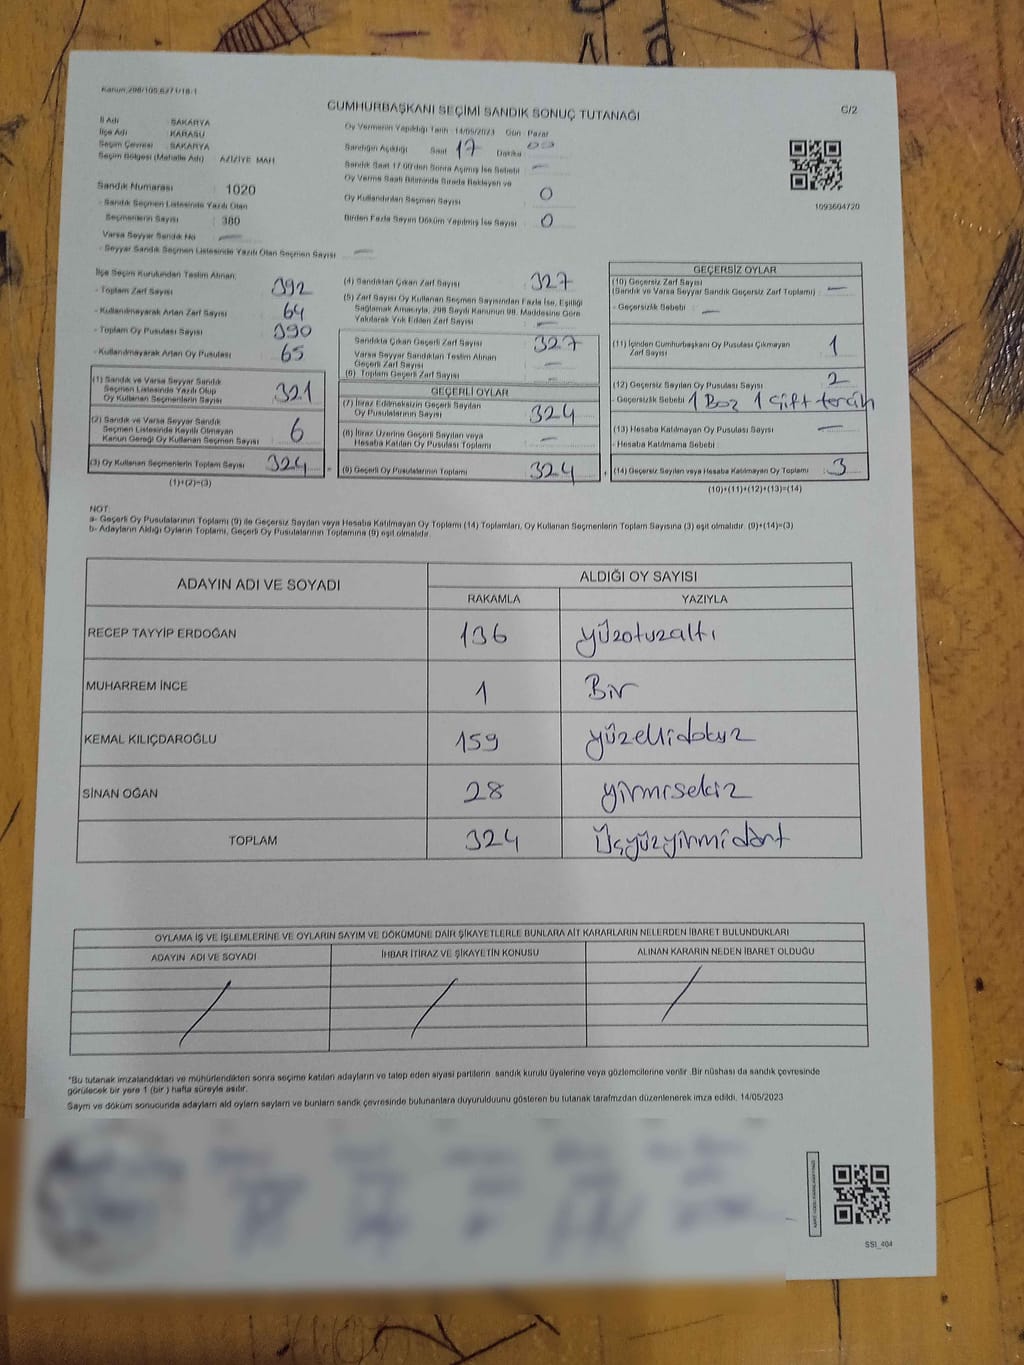 Kanun:298/105,6271/18-1
CUMHURBAŞKANI SEÇİMİ SANDIK SONUÇ TUTANAĞI
C/2
İl Adı : SAKARYA
İlçe Adı : KARASU
Seçim Çevresi : SAKARYA
Seçim Bölgesi (Mahalle Adı) : AZİZİYE MAH
Sandık Numarası : 1020
- Sandık Seçmen Listesinde Yazılı Olan
Seçmenlerin Sayısı : 380
Varsa Seyyar Sandık No : —
- Seyyar Sandık Seçmen Listesinde Yazılı Olan Seçmen Sayısı : —
Oy Vermenin Yapıldığı Tarih : 14/05/2023 Gün : Pazar
Sandığın Açıldığı Saat 17 Dakika
Sandık Saat 17:00'den Sonra Açılmış İse Sebebi : —
Oy Verme Saati Bitiminde Sırada Bekleyen ve
Oy Kullandırılan Seçmen Sayısı : 0
Birden Fazla Sayım Döküm Yapılmış İse Sayısı : 0
1093604720
İlçe Seçim Kurulundan Teslim Alınan:
- Toplam Zarf Sayısı : 392
- Kullanılmayarak Artan Zarf Sayısı : 64
- Toplam Oy Pusulası Sayısı : 390
- Kullanılmayarak Artan Oy Pusulası : 65
(1) Sandık ve Varsa Seyyar Sandık
Seçmen Listesinde Yazılı Olup
Oy Kullanan Seçmenlerin Sayısı : 321
(2) Sandık ve Varsa Seyyar Sandık
Seçmen Listesinde Kayıtlı Olmayan
Kanun Gereği Oy Kullanan Seçmen Sayısı : 6
(3) Oy Kullanan Seçmenlerin Toplam Sayısı : 324
(1)+(2)=(3)
(4) Sandıktan Çıkan Zarf Sayısı : 327
(5) Zarf Sayısı Oy Kullanan Seçmen Sayısından Fazla İse, Eşitliği
Sağlamak Amacıyla, 298 Sayılı Kanunun 98. Maddesine Göre
Yakılarak Yok Edilen Zarf Sayısı : —
Sandıkta Çıkan Geçerli Zarf Sayısı : 327
Varsa Seyyar Sandıktan Teslim Alınan
Geçerli Zarf Sayısı : —
(6) Toplam Geçerli Zarf Sayısı : —
GEÇERLİ OYLAR
(7) İtiraz Edilmeksizin Geçerli Sayılan
Oy Pusulalarının Sayısı : 324
(8) İtiraz Üzerine Geçerli Sayılan veya
Hesaba Katılan Oy Pusulası Toplamı : —
(9) Geçerli Oy Pusulalarının Toplamı : 324
GEÇERSİZ OYLAR
(10) Geçersiz Zarf Sayısı
(Sandık ve Varsa Seyyar Sandık Geçersiz Zarf Toplamı) : —
- Geçersizlik Sebebi : —
(11) İçinden Cumhurbaşkanı Oy Pusulası Çıkmayan
Zarf Sayısı : 1
(12) Geçersiz Sayılan Oy Pusulası Sayısı : 2
- Geçersizlik Sebebi : 1 Boz 1 Çift tercih
(13) Hesaba Katılmayan Oy Pusulası Sayısı : —
- Hesaba Katılmama Sebebi :
(14) Geçersiz Sayılan veya Hesaba Katılmayan Oy Toplamı : 3
(10)+(11)+(12)+(13)=(14)
NOT:
a- Geçerli Oy Pusulalarının Toplamı (9) ile Geçersiz Sayılan veya Hesaba Katılmayan Oy Toplamı (14) Toplamları, Oy Kullanan Seçmenlerin Toplam Sayısına (3) eşit olmalıdır. (9)+(14)=(3)
b- Adayların Aldığı Oyların Toplamı, Geçerli Oy Pusulalarının Toplamına (9) eşit olmalıdır.
ADAYIN ADI VE SOYADI ALDIĞI OY SAYISI
RAKAMLA YAZIYLA
RECEP TAYYİP ERDOĞAN 136 yüzotuzaltı
MUHARREM İNCE 1 Bir
KEMAL KILIÇDAROĞLU 159 yüzellidokuz
SİNAN OĞAN 28 yirmisekiz
TOPLAM 324 Üçyüzyirmidört
OYLAMA İŞ VE İŞLEMLERİNE VE OYLARIN SAYIM VE DÖKÜMÜNE DAİR ŞİKAYETLERLE BUNLARA AİT KARARLARIN NELERDEN İBARET BULUNDUKLARI
ADAYIN ADI VE SOYADI İHBAR İTİRAZ VE ŞİKAYETİN KONUSU ALINAN KARARIN NEDEN İBARET OLDUĞU
*Bu tutanak imzalandıktan ve mühürlendikten sonra seçime katılan adayların ve talep eden siyasi partilerin sandık kurulu üyelerine veya gözlemcilerine verilir. Bir nüshası da sandık çevresinde
görülecek bir yere 1 (bir ) hafta süreyle asılır.
Sayım ve döküm sonucunda adayların ald oyların sayıları ve bunların sandık çevresinde bulunanlara duyurulduunu gösteren bu tutanak tarafmzdan düzenlenerek imza edildi. 14/05/2023
SSI_404